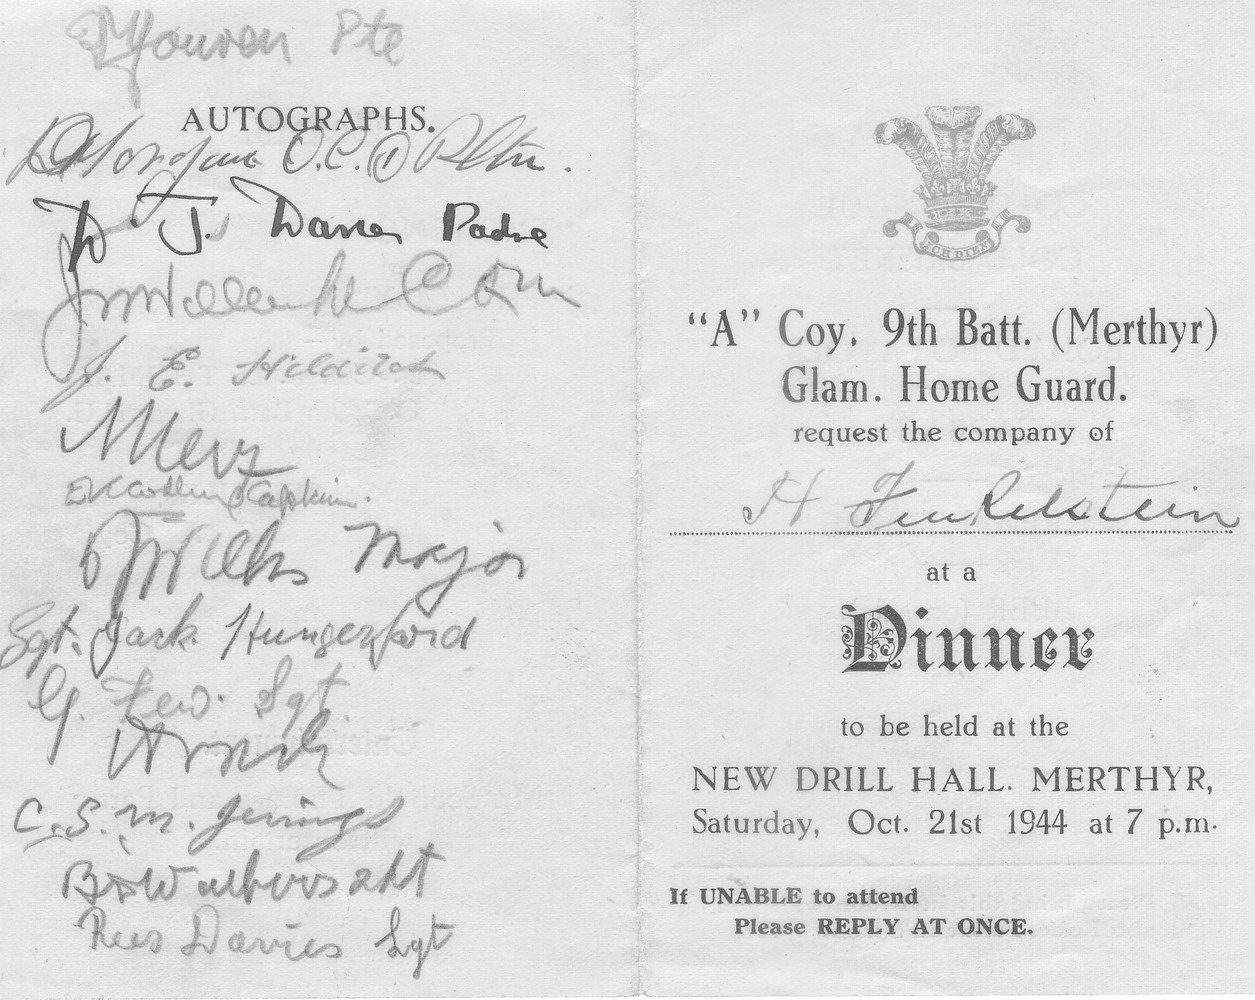 Pte
AUTOGRAPHS.
D Morgan O.C. D Pltn.
D. J. Davies Padre
J. E. Hilditch
Major
Sgt. Jack Hungerford
G. Few. Sgt.
C.S.M. Jenings
Rees Davies Sgt
ICH DIEN
“A” Coy. 9th Batt. (Merthyr)
Glam. Home Guard.
request the company of
H Finkelstein
at a
Dinner
to be held at the
NEW DRILL HALL. MERTHYR,
Saturday, Oct. 21st 1944 at 7 p.m.
If UNABLE to attend
Please REPLY AT ONCE.